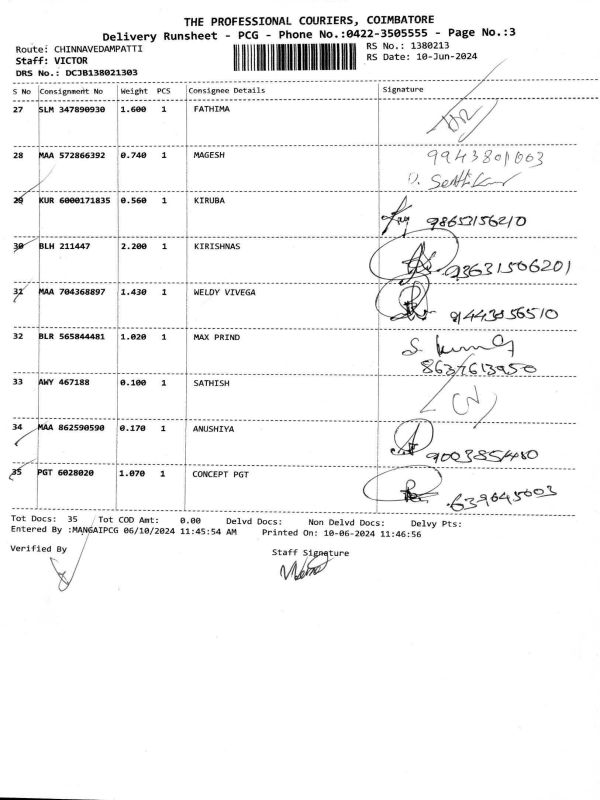 THE PROFESSIONAL COURIERS, COIMBATORE
Delivery Runsheet - PCG - Phone No.:0422-3505555 - Page No.:3
Route: CHINNAVEDAMPATTI
RS No.: 1380213
Staff: VICTOR
RS Date: 10-Jun-2024
DRS No.: DCJB138021303
S No Consignment No Weight PCS Consignee Details Signature
27 SLM 347890930 1.600 1 FATHIMA
28 MAA 572866392 0.740 1 MAGESH 9943801003
29 KUR 6000171835 0.560 1 KIRUBA 98653156210
30 BLH 211447 2.200 1 KIRISHNAS 93631506201
31 MAA 704368897 1.430 1 WELDY VIVEGA
32 BLR 565844481 1.020 1 MAX PRIND
8637613950
33 AWY 467188 0.100 1 SATHISH
34 MAA 862590590 0.170 1 ANUSHIYA
35 PGT 6028020 1.070 1 CONCEPT PGT
Tot Docs: 35 Tot COD Amt: 0.00 Delvd Docs: Non Delvd Docs: Delvy Pts:
Entered By :MANGAIPCG 06/10/2024 11:45:54 AM Printed On: 10-06-2024 11:46:56
Verified By
Staff Signature